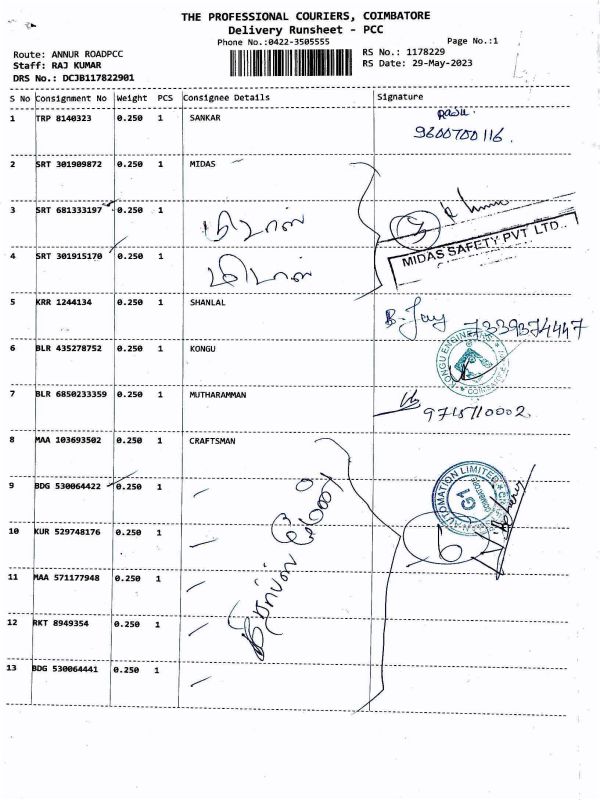 THE PROFESSIONAL COURIERS, COIMBATORE
Delivery Runsheet - PCC
Phone No.:0422-3505555 Page No.:1
Route: ANNUR ROADPCC RS No.: 1178229
Staff: RAJ KUMAR RS Date: 29-May-2023
DRS No.: DCJB117822901
S No Consignment No Weight PCS Consignee Details Signature
1 TRP 8140323 0.250 1 SANKAR
9600700116.
2 SRT 301909872 0.250 1 MIDAS
3 SRT 681333197 0.250 1 மிடாஸ்
MIDAS SAFETY PVT LTD.
4 SRT 301915170 0.250 1 மிடாஸ்
5 KRR 1244134 0.250 1 SHANLAL B. Jay 7339374447
6 BLR 435278752 0.250 1 KONGU
7 BLR 6850233359 0.250 1 MUTHARAMMAN
9715110002
8 MAA 103693502 0.250 1 CRAFTSMAN
9 BDG 530064422 0.250 1
AUTOMATION LIMITED
G1
COIMBATORE
10 KUR 529748176 0.250 1
6
11 MAA 571177948 0.250 1
12 RKT 8949354 0.250 1
13 BDG 530064441 0.250 1